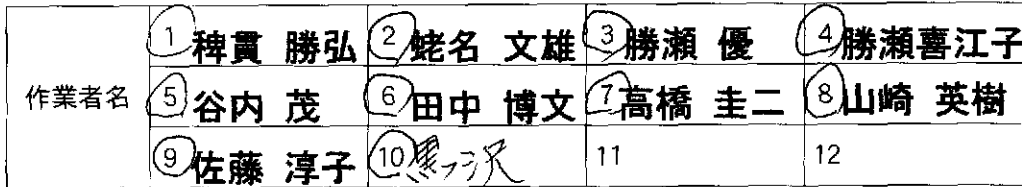 ①稗貫 勝弘 ②蛯名 文雄 ③勝瀬 優 ④勝瀬喜江子
作業者名 ⑤谷内 茂 ⑥田中 博文 ⑦高橋 圭二 ⑧山崎 英樹
⑨佐藤 淳子 ⑩黒沢 11 12